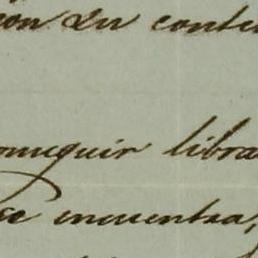 con su conte
onseguir libra
se encuentra,